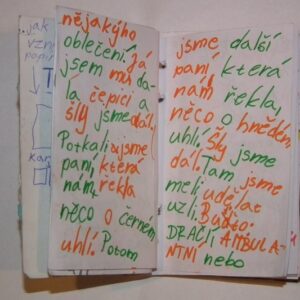 jak
nějakého
oblečení. Já
jsem mu da-
la čepici a
šly jsme dál.
Potkali jsme
paní, která
nám řekla
něco o černém
uhlí. Potom
jsme další
paní která
nám řekla,
něco o hnědém
uhlí. Šly jsme
dál. Tam jsme
meli udělat
uzli. Buďto:
DRAČÍ, AMBULA-
NTNÍ nebo